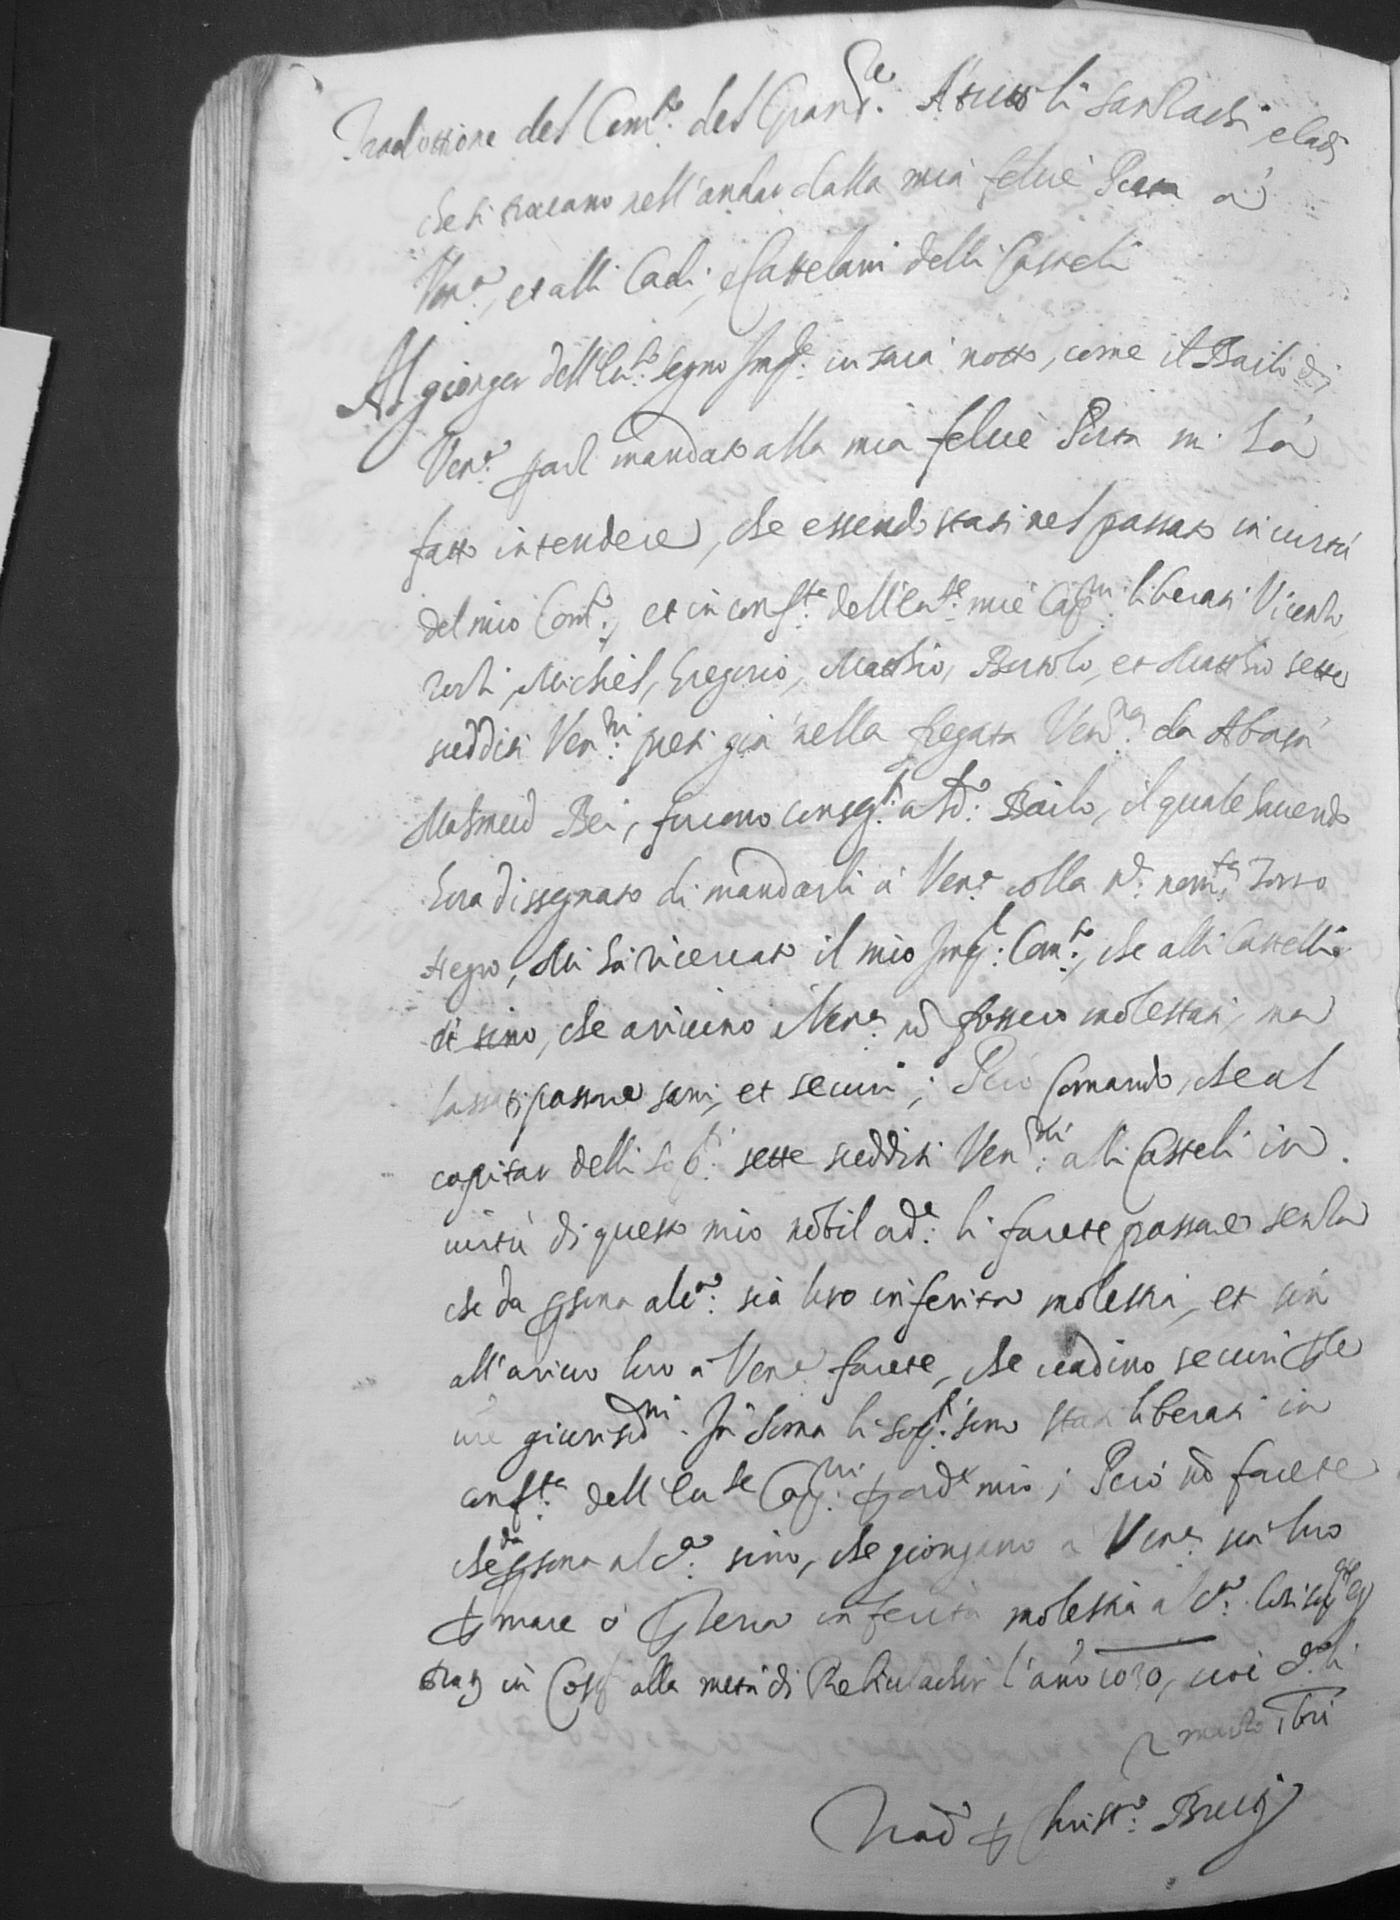 Traduttione del Com.to del Gran S.re A tutti li Sanzachi, e Cadi
che si trovano nell'andar dalla mia felice Porta à
Ven.a, et alli Cadi, e Castelani delli Casteli
Al gionger dell'Ecc.so Segno Imp.le vi sarà noto, come il Bailo di
Ven.a mandato alla mia felice Porta mi hà
fatto intendere, che essendo stati nel passato in virtù
del mio Com.to, et in conf.tà dell'Ecc.se mie Cap.ni liberati Vicenzo,
Michiel, Gregorio, Matthio, Bortolo, et Matthio sette
sudditi Ven.ni presi già nella fregata Ven.na da
Mahmud Bei, furono conseg.ti al d.o Bailo, il quale havendo
hora dissegnato di mandarli à Ven.a colla
Negro, Mi hà ricercato il mio Imp.l Com.to, che alli Castelli
et sino, che arivino à Ven.a nõ fossero molestati, ma
lassati passare sani, et securi; Però Comando, che al
capitar delli sop.ti sette sudditi Ven.ni alli Casteli in
virtù di questo mio nobil ord.e li farete passare senza
che da psona alc.a sia loro inferita molestia, et sin
all'arivo loro à Ven.a farete, che vadino securi p le
vre giurisd.ni. In soma li sop.ti sono stati liberati in
conf.tà dell'Ecc.se Cap.ni p ord.e mio; Però nõ farete
che da psona alc.a sino, che giongano à Ven.a sia loro
p mare ò p terra inferita molestia alc.a. Cosi
in Cosp.li alla metà di Rebiulachir l'año 1030, cioè
marzo
Trad.o p Christ.o Bruti